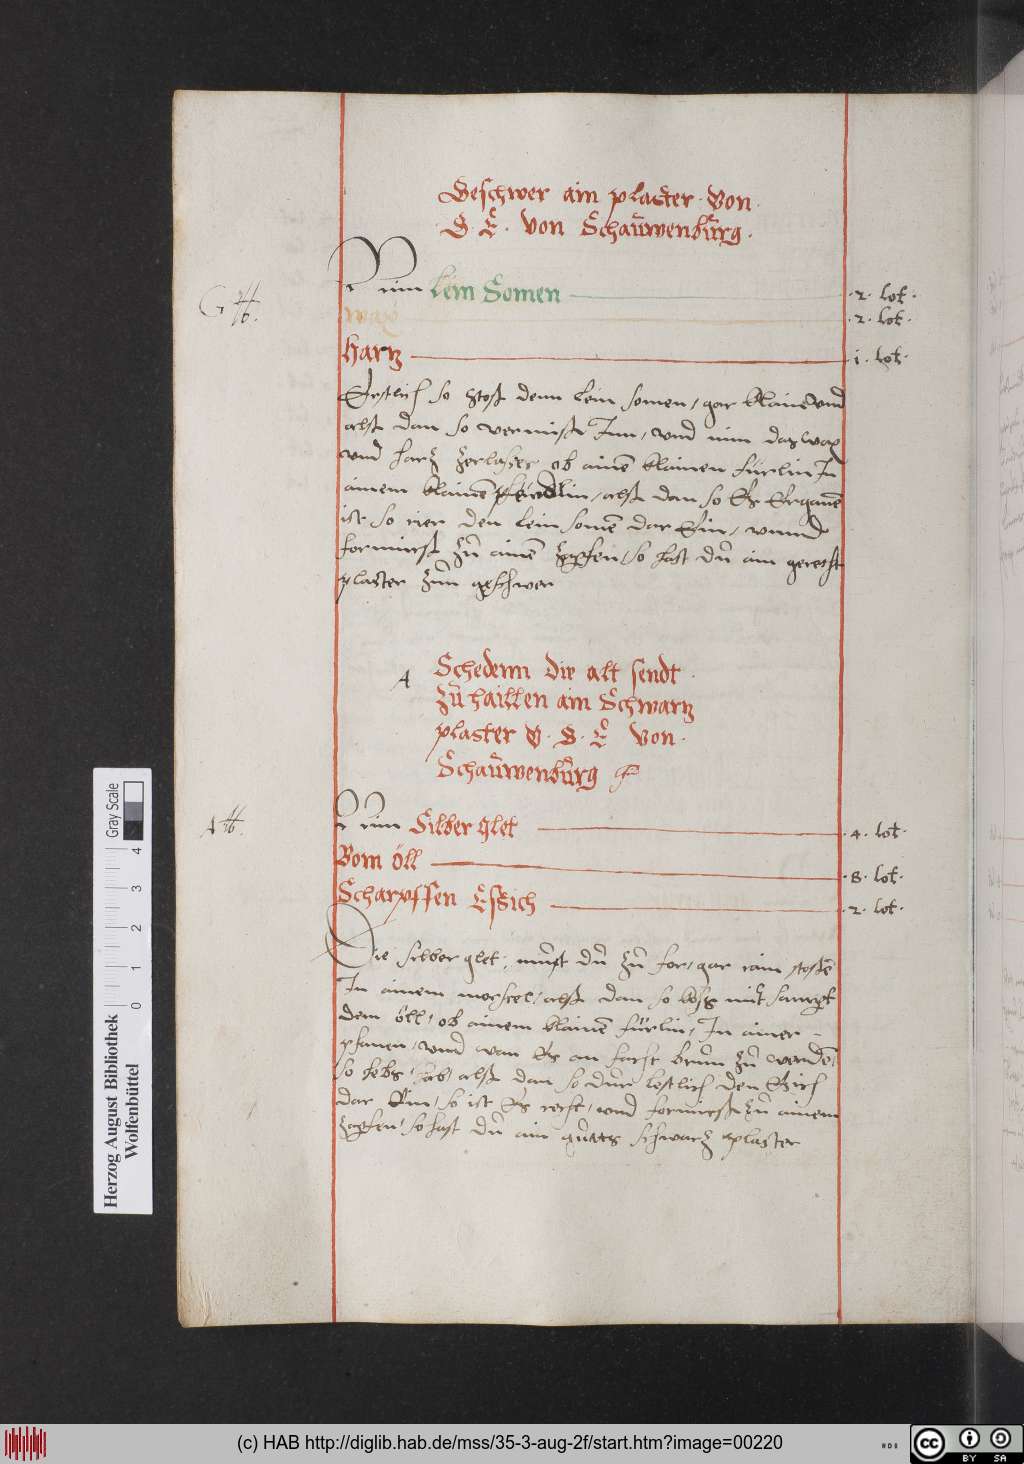 Geschwer ain plaster Von
S. E. Von Schaüwenbürg.
nim Lein Somen 2. lot.
wax 2. lot.
Hartz 1. lot.
Erstlich so stoß denn lein somen, gar klain vnd
alß dan so vermisch Inn, vnd nim das wax
vnd hartz zerlaß es ob ainem klainen fürlin In
ainem klainen pfendlin, alß dan so Es Ergangē
ist so rier den lein somē dar Ein, vnnd
formirß zů ainē zapfen, so hast dů ain gerecht
plaster zům geschwer
A Schedenn die alt sendt
zů haillen ain Schwartz
plaster V. S. E Von
Schaüwenbürg
nim Silber glet 4. lot.
Bom öll 8. lot.
Scharpffen Essich 2. lot.
Die silber glet, můst dů zů for, gar rain stoßē
In ainem morsel, alß dan so koch mit sampt
dem öll, ob ainem klainē fürlin, In ainer
pfanen, vnd wan Es an facht brůn zů werdē,
so hebs herab, alß dan so důe lestlich den Esich
dar Ein, so ist Es recht, vnd formirß zů ainem
zapfen, so hast dů ain gůtts schwartz plaster
Herzog August Bibliothek
Wolfenbüttel
0 1 2 3 4
Gray Scale
(c) HAB http://diglib.hab.de/mss/35-3-aug-2f/start.htm?image=00220
cc BY SA